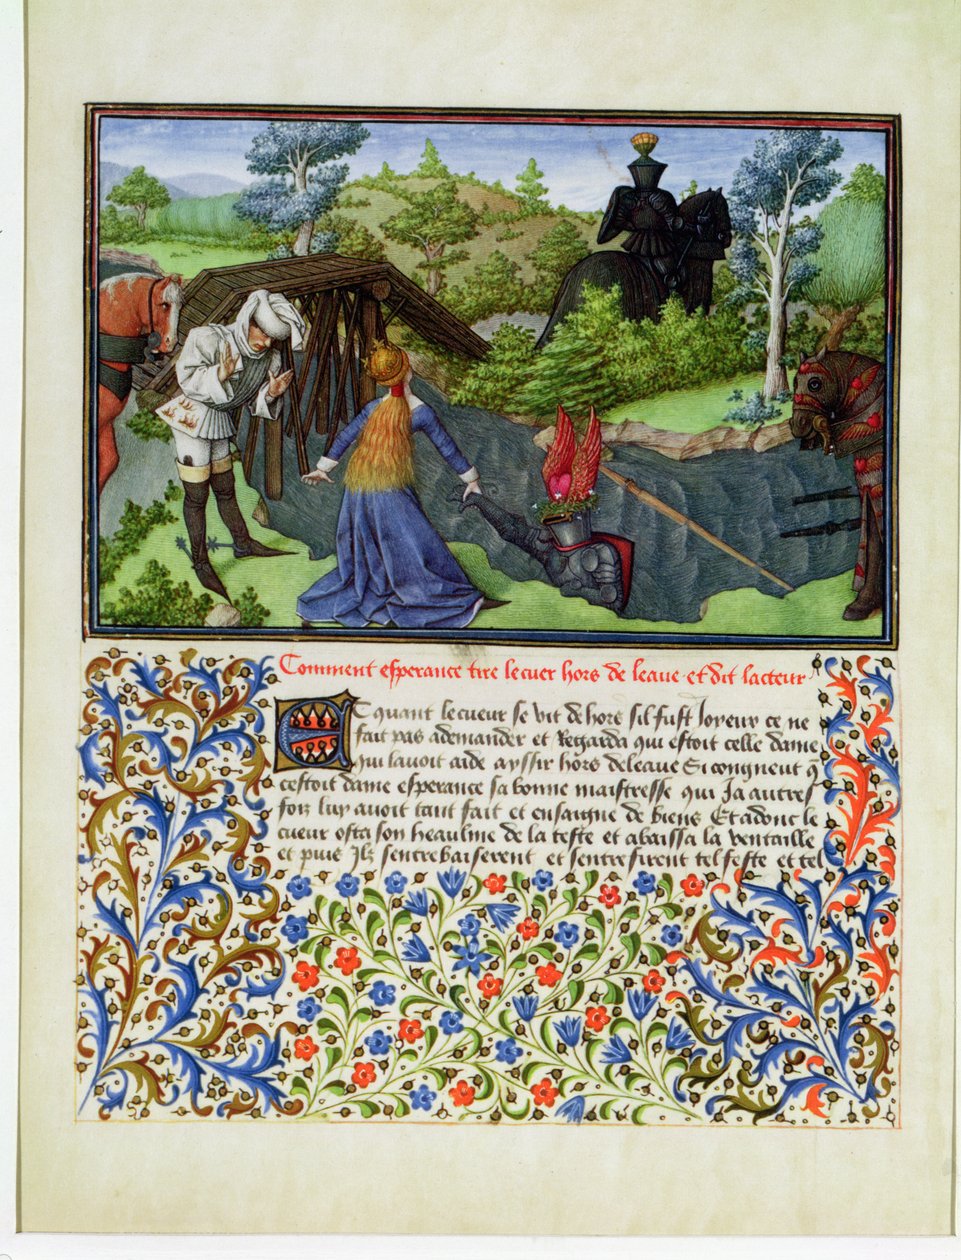 Comment esperance tire le cuer hors de leaue · et dit lacteur
Et quant le cueur se vit dehors sil fust Joyeux ce ne
fait pas ademander et Regarda qui estoit celle dame
qui lavoit aide ayssir hors deleaue Si congneut q̃
cestoit dame esperance sa bonne maistresse qui Ja autres
foiz luy avoit tant fait et ensaigne de biens Et adonc le
cueur osta son heaulme de la teste et abaissa la ventaille
et puis Jlz sentrebaiserent et sentrefirent tel feste et tel